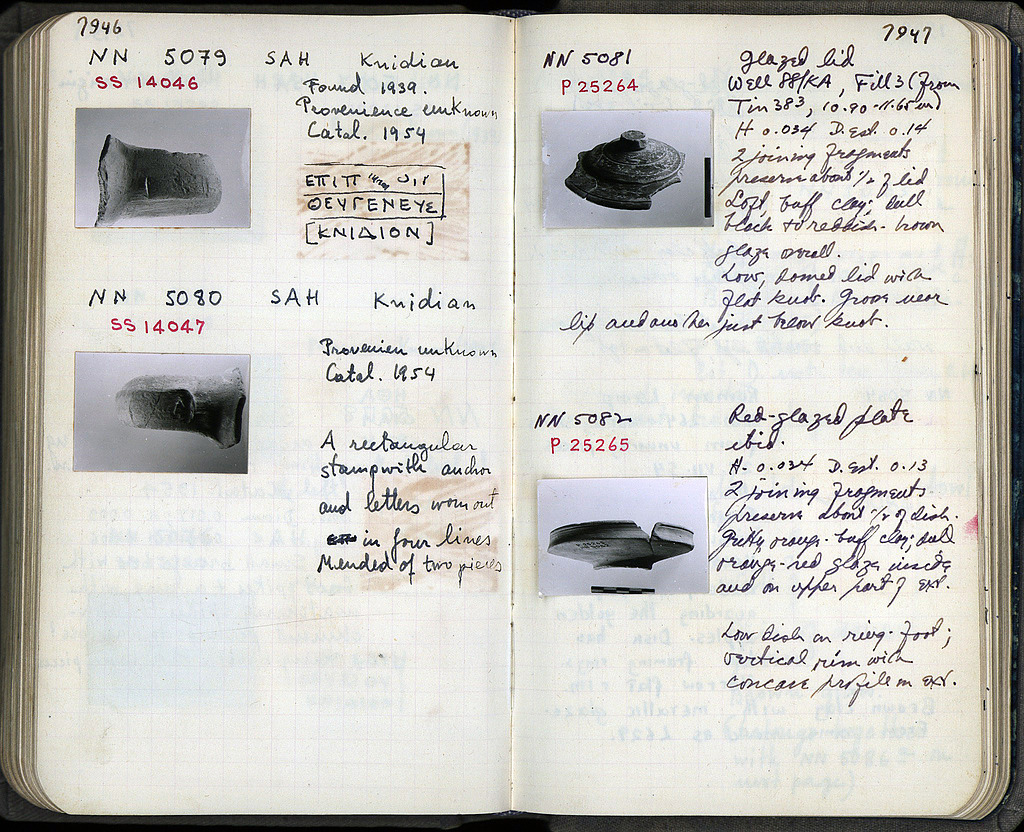 7946
NN 5079 SAH Knidian
SS 14046
Found 1939.
Provenience unknown
Catal. 1954
ΕΠΙΠ
ΘΕΥΓΕΝΕΥΣ
[ΚΝΙΔΙΟΝ]
NN 5080 SAH Knidian
SS 14047
Provenien unknown
Catal. 1954
A rectangular
stamp with anchor
and letters worn out
in four lines.
Mended of two pieces
7947
NN 5081 Glazed lid
P 25264 Well 88/KA, Fill 3 (from
Tin 383, 10.90-11.65 m)
H 0.034 D. est. 0.14
2 joining fragments
preserve about 1/2 of lid
Soft, buff clay; dull
black to reddish-brown
glaze overall.
Low, domed lid with
flat knob. Groove near
lip and another just below knob.
NN 5082 Red-glazed plate
P 25265 ibid.
H. 0.034 D. est. 0.13
2 joining fragments
preserve about 1/2 of dish.
Gritty orange-buff clay; dull
orange-red glaze inside
and on upper part of ext.
Low dish on ring-foot;
vertical rim with
concave profile on ext.